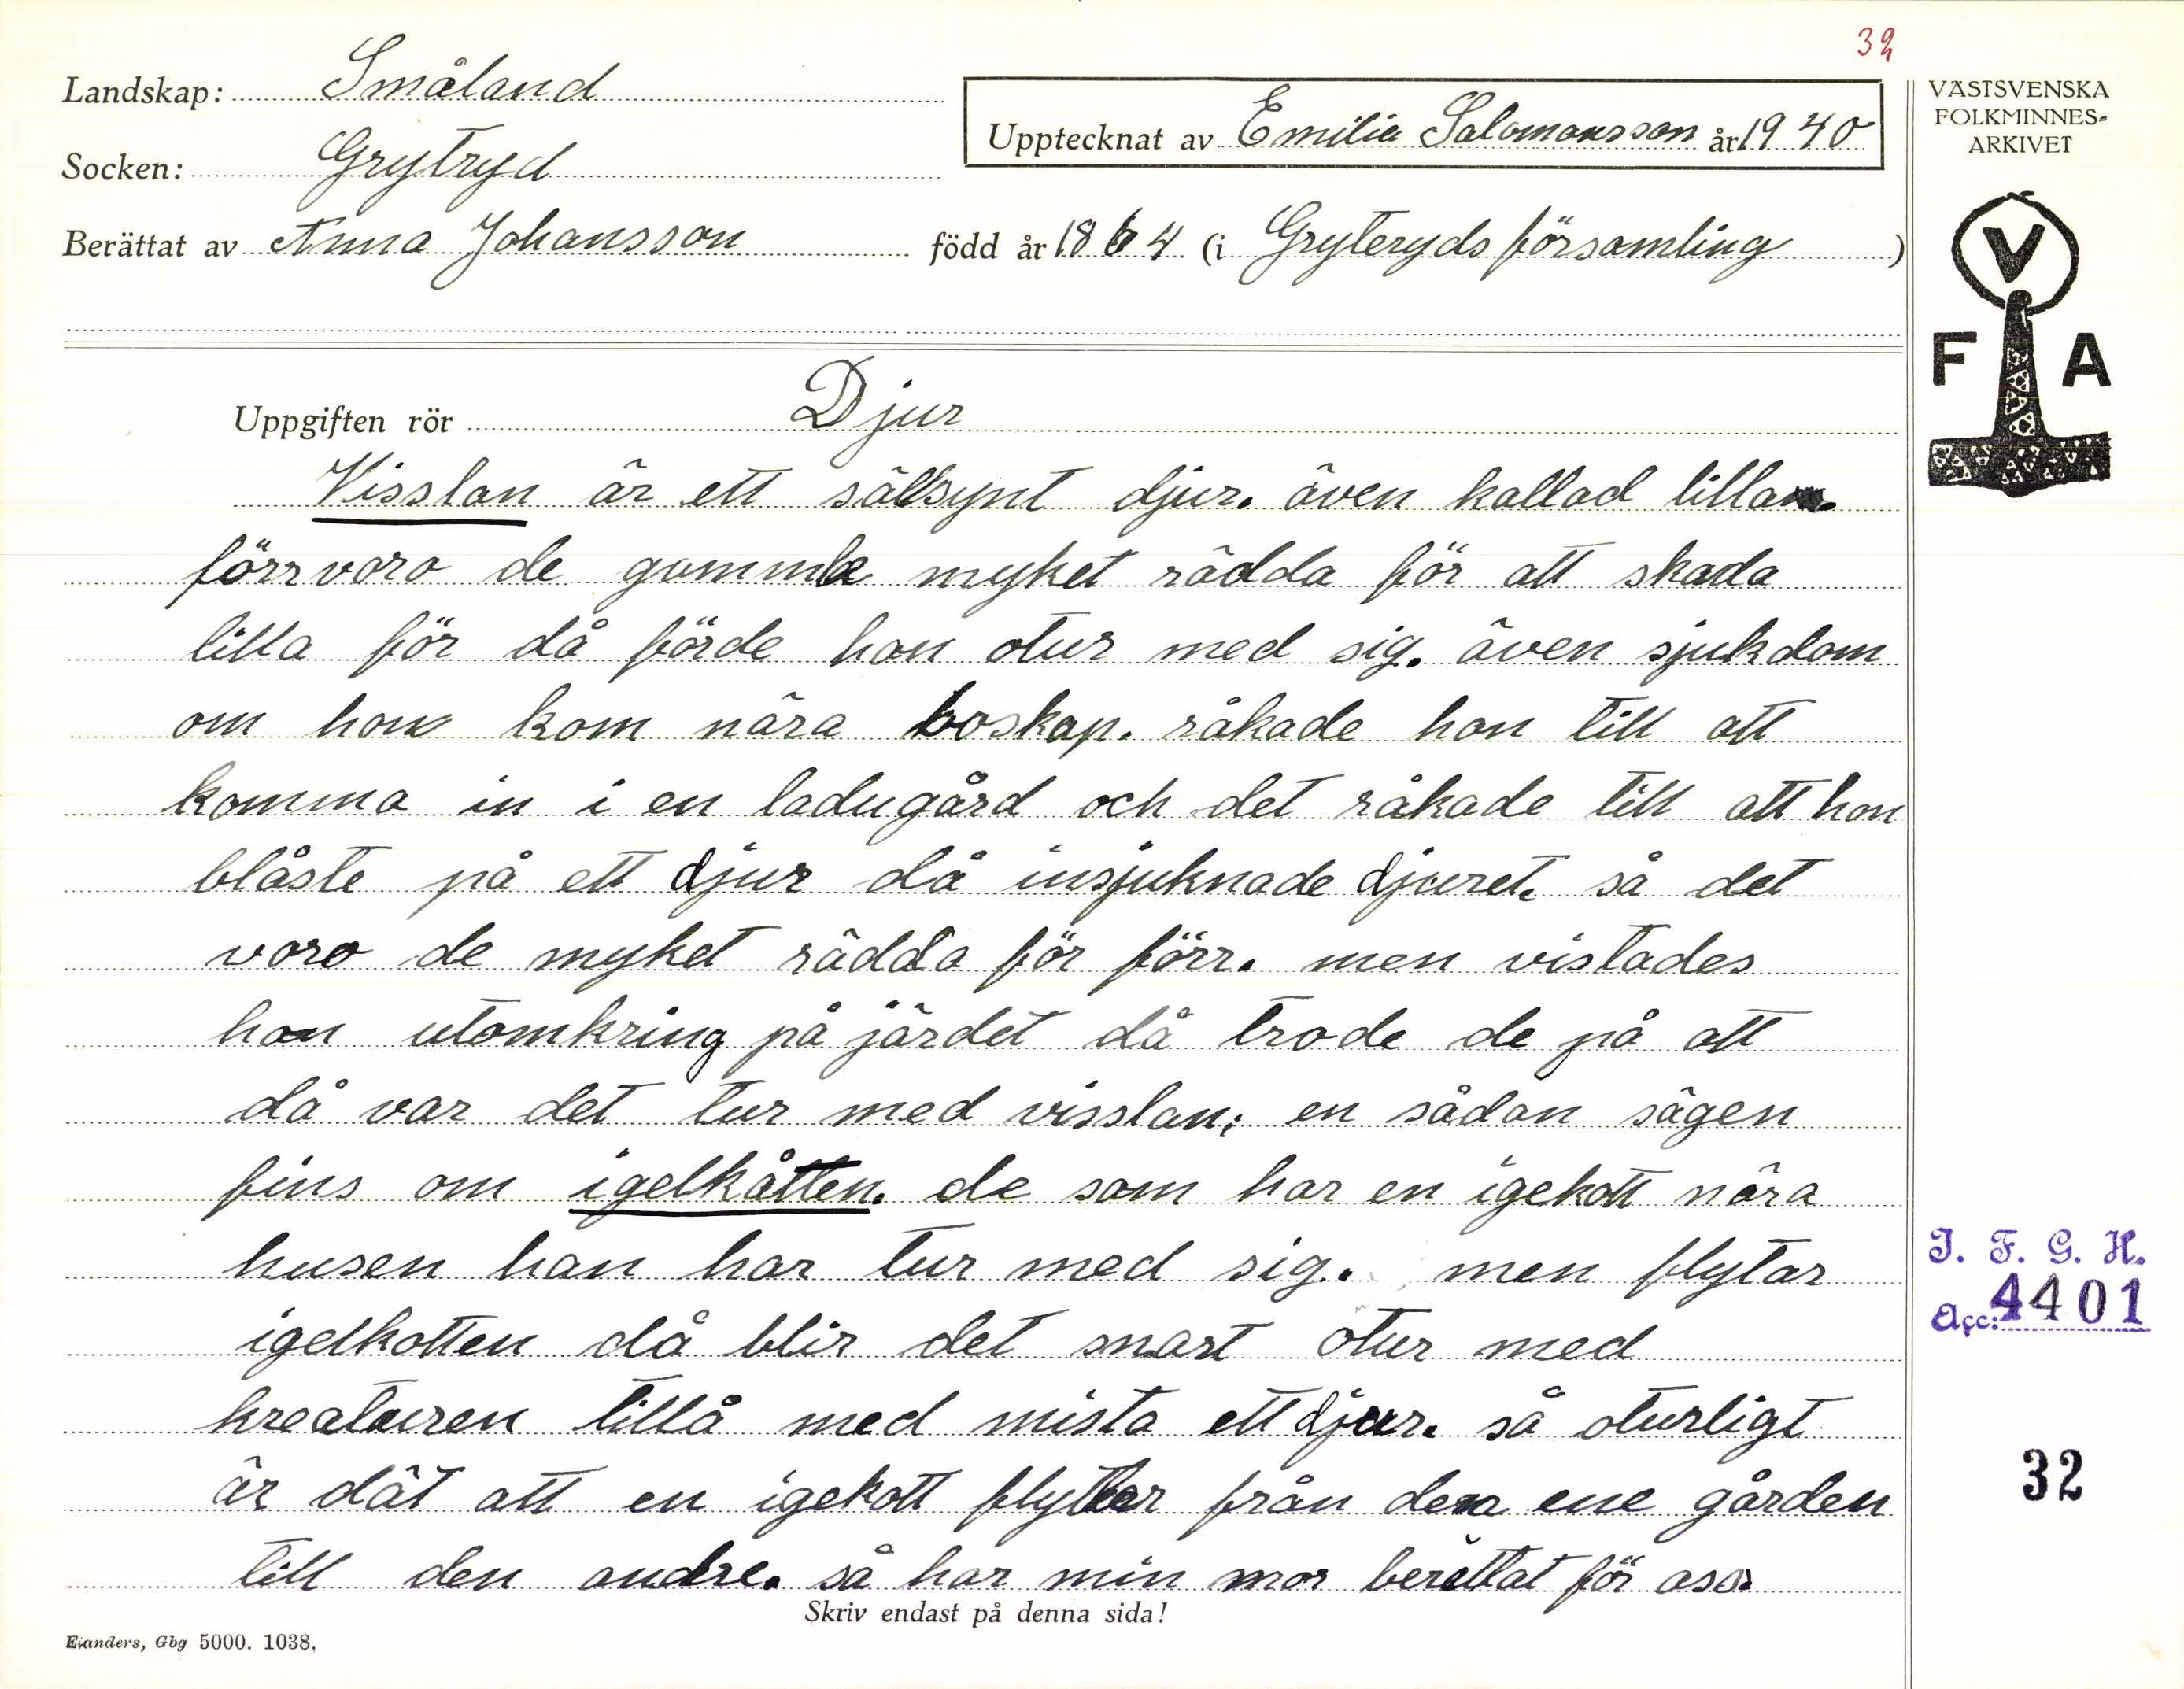 32
Landskap: Småland
Socken: Grytryd
Upptecknat av Emilia Salomonsson år 1940
Berättat av Anna Johansson född år 1864 (i Gryteryds församling)
VÄSTSVENSKA
FOLKMINNES-
ARKIVET
V
F A
Uppgiften rör Djur
Visslan är ett sällsynt djur. även kallad lilla.
förr voro de gammla myket rädda för att skada
lilla för då förde hon otur med sig. även sjukdom
om hon kom nära boskap. råkade hon till att
komma in i en ladugård och det råkade till att hon
blåste på ett djur då insjuknade djuret. så det
voro de myket rädda för förr. men vistades
hon utomkring på järdet då trode de på att
då var det tur med visslan; en sådan sägen
fins om igelkåtten. de som har en igekott nära
husen han har tur med sig. men flytar
igelkotten då blir det snart otur med
kreaturen tillå med mista ett djur. så oturligt
är dät att en igekott flyttar från den ene gården
till den andre. så har min mor berättat för oss
Skriv endast på denna sida!
I. F. G. H.
Acc: 4401
32
Elanders, Gbg 5000. 1038.